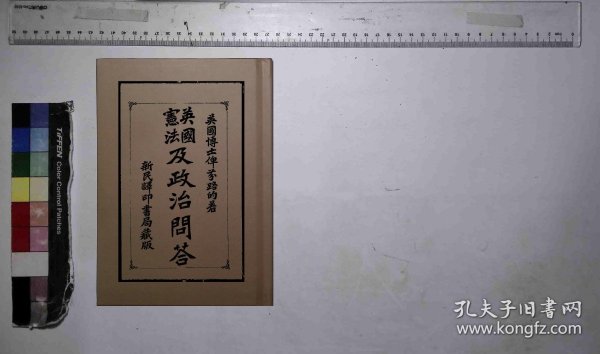 英國博士俾芬路的著
英國
憲法
及政治問答
新民譯印書局藏版
TIFFEN Color Control Patches
孔夫子旧书网
www.kongfz.com